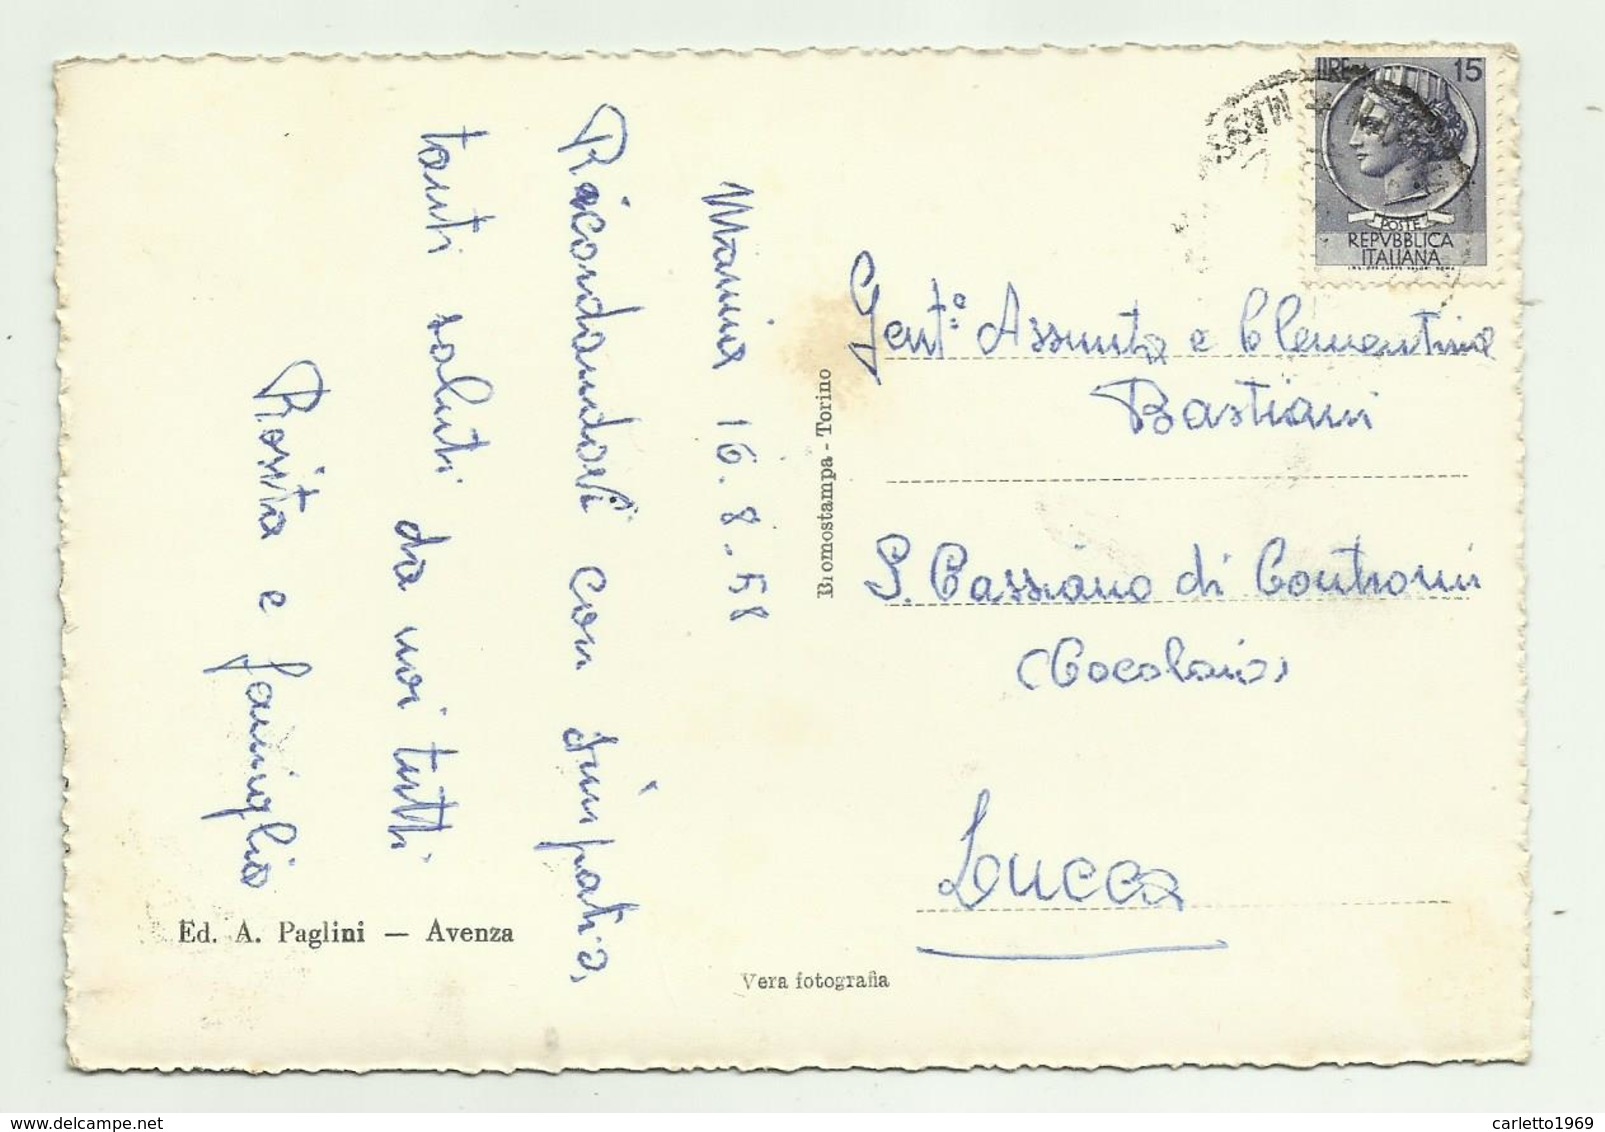 Marina 16.8.58
Ricordandovi con simpatia,
tanti saluti da noi tutti
Rosita e famiglia
Ed. A. Paglini — Avenza
Bromostampa - Torino
Vera fotografia
LIRE 15
POSTE
REPVBBLICA
ITALIANA
Gent.e Assunta e Clementina
Bastiani
S. Cassiano di Controni
(Cocolaio)
Lucca
delcampe.net
carletto1969